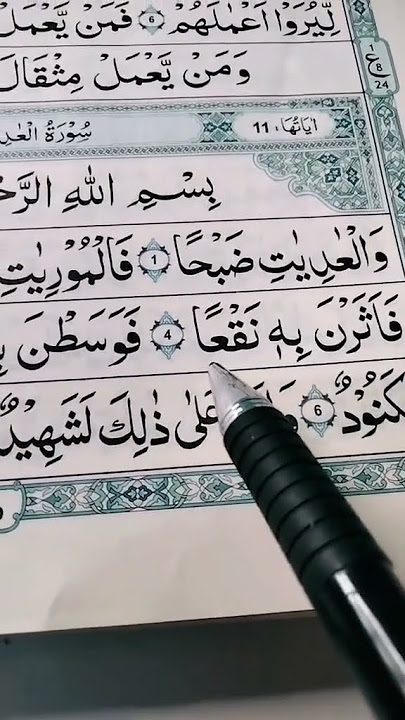 لِّيُرَوْا اَعْمَالَهُمْ ۝6 فَمَنْ يَّعْمَلْ
وَمَنْ يَّعْمَلْ مِثْقَالَ
1
ع
8
24
اٰيَاتُهَا: 11 سُوْرَةُ
بِسْمِ اللّٰهِ
وَالْعٰدِيٰتِ ضَبْحًا ۝1 فَالْمُوْرِيٰتِ
فَاَثَرْنَ بِهٖ نَقْعًا ۝4 فَوَسَطْنَ
6 عَلٰى ذٰلِكَ لَشَهِيْدٌ